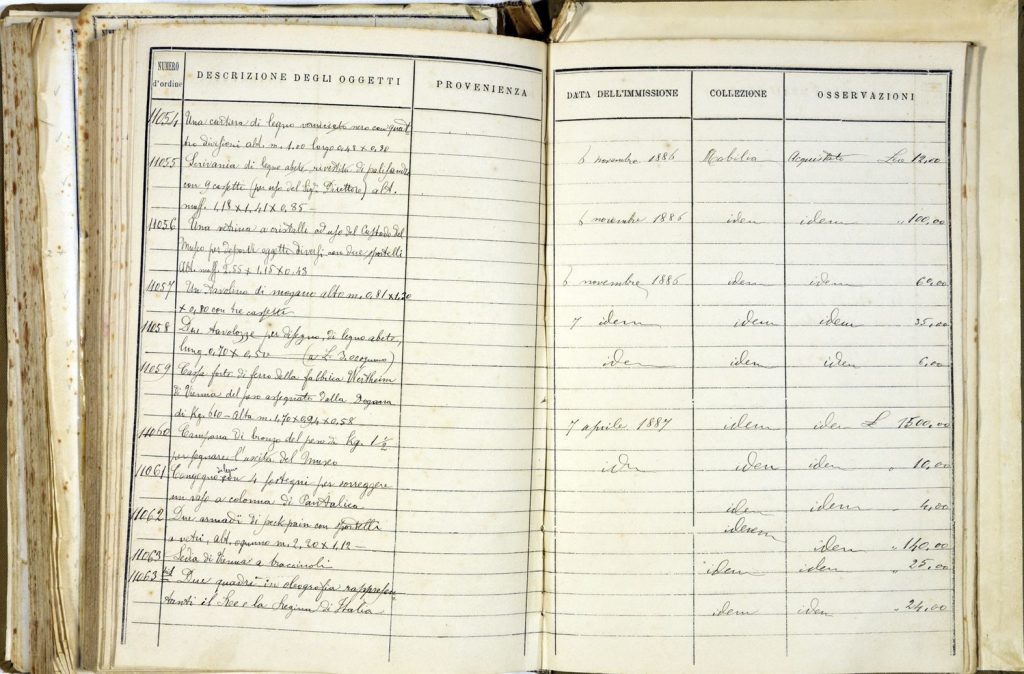 NUMERO d'ordine
DESCRIZIONE DEGLI OGGETTI
PROVENIENZA
DATA DELL'IMMISSIONE
COLLEZIONE
OSSERVAZIONI
11054 Una cartiera di legno verniciato nero con quat
tro divisioni alt. m. 1.00 largo 0,48 x 0,30
6 novembre 1886 Mobilia Acquistato Lire 12,00
11055 Scrivania di legno abete rivestita di palissandro
con 9 cassetti (per uso del Sig. Direttore) alt.
mass. 1,18 x 1,41 x 0,85 –
6 novembre 1886 idem idem " 100,00
11056 Una vetrina a cristalle ad uso del Custode del
Museo per deporvi oggetti diversi, con due sportelli
Alt. mass. 2.55 x 1,15 x 0.43
6 novembre 1886 idem idem 60,00
11057 Un tavolino di mogano alto m. 0,81 x 1,20
x 0,80 con tre cassetti
7 idem idem idem 35,00
11058 Due tavolozze per disegno, di legno abete,
lung. 0,70 x 0,50 (a L. 3 ognuna)
idem idem idem 6,00
11059 Cassa forte di ferro della fabbrica Wertheim
di Vienna del peso assegnato dalla Dogana
di Kg. 610 – Alta m. 1,70 x 0,94 x 0,58
7 aprile 1887 idem idem £ 1500,00
11060 Campana di bronzo del peso di Kg. 1 ½
per segnare l'uscita del Museo
idem idem idem " 10,00
11061 con 4 sostegni per sorreggere
un vaso a colonna di Pantalica
idem idem " 4,00
11062 Due armadi di peck pain con sportelli
a vetri, alt. ognuno m. 2,20 x 1,12 –
idem idem " 140,00
11063 Sedia di Vienna a bracciuoli
idem idem " 25,00
11063 bis Due quadri in oleografia rappresen
tanti il Re e la Regina di Italia
idem idem " 24,00